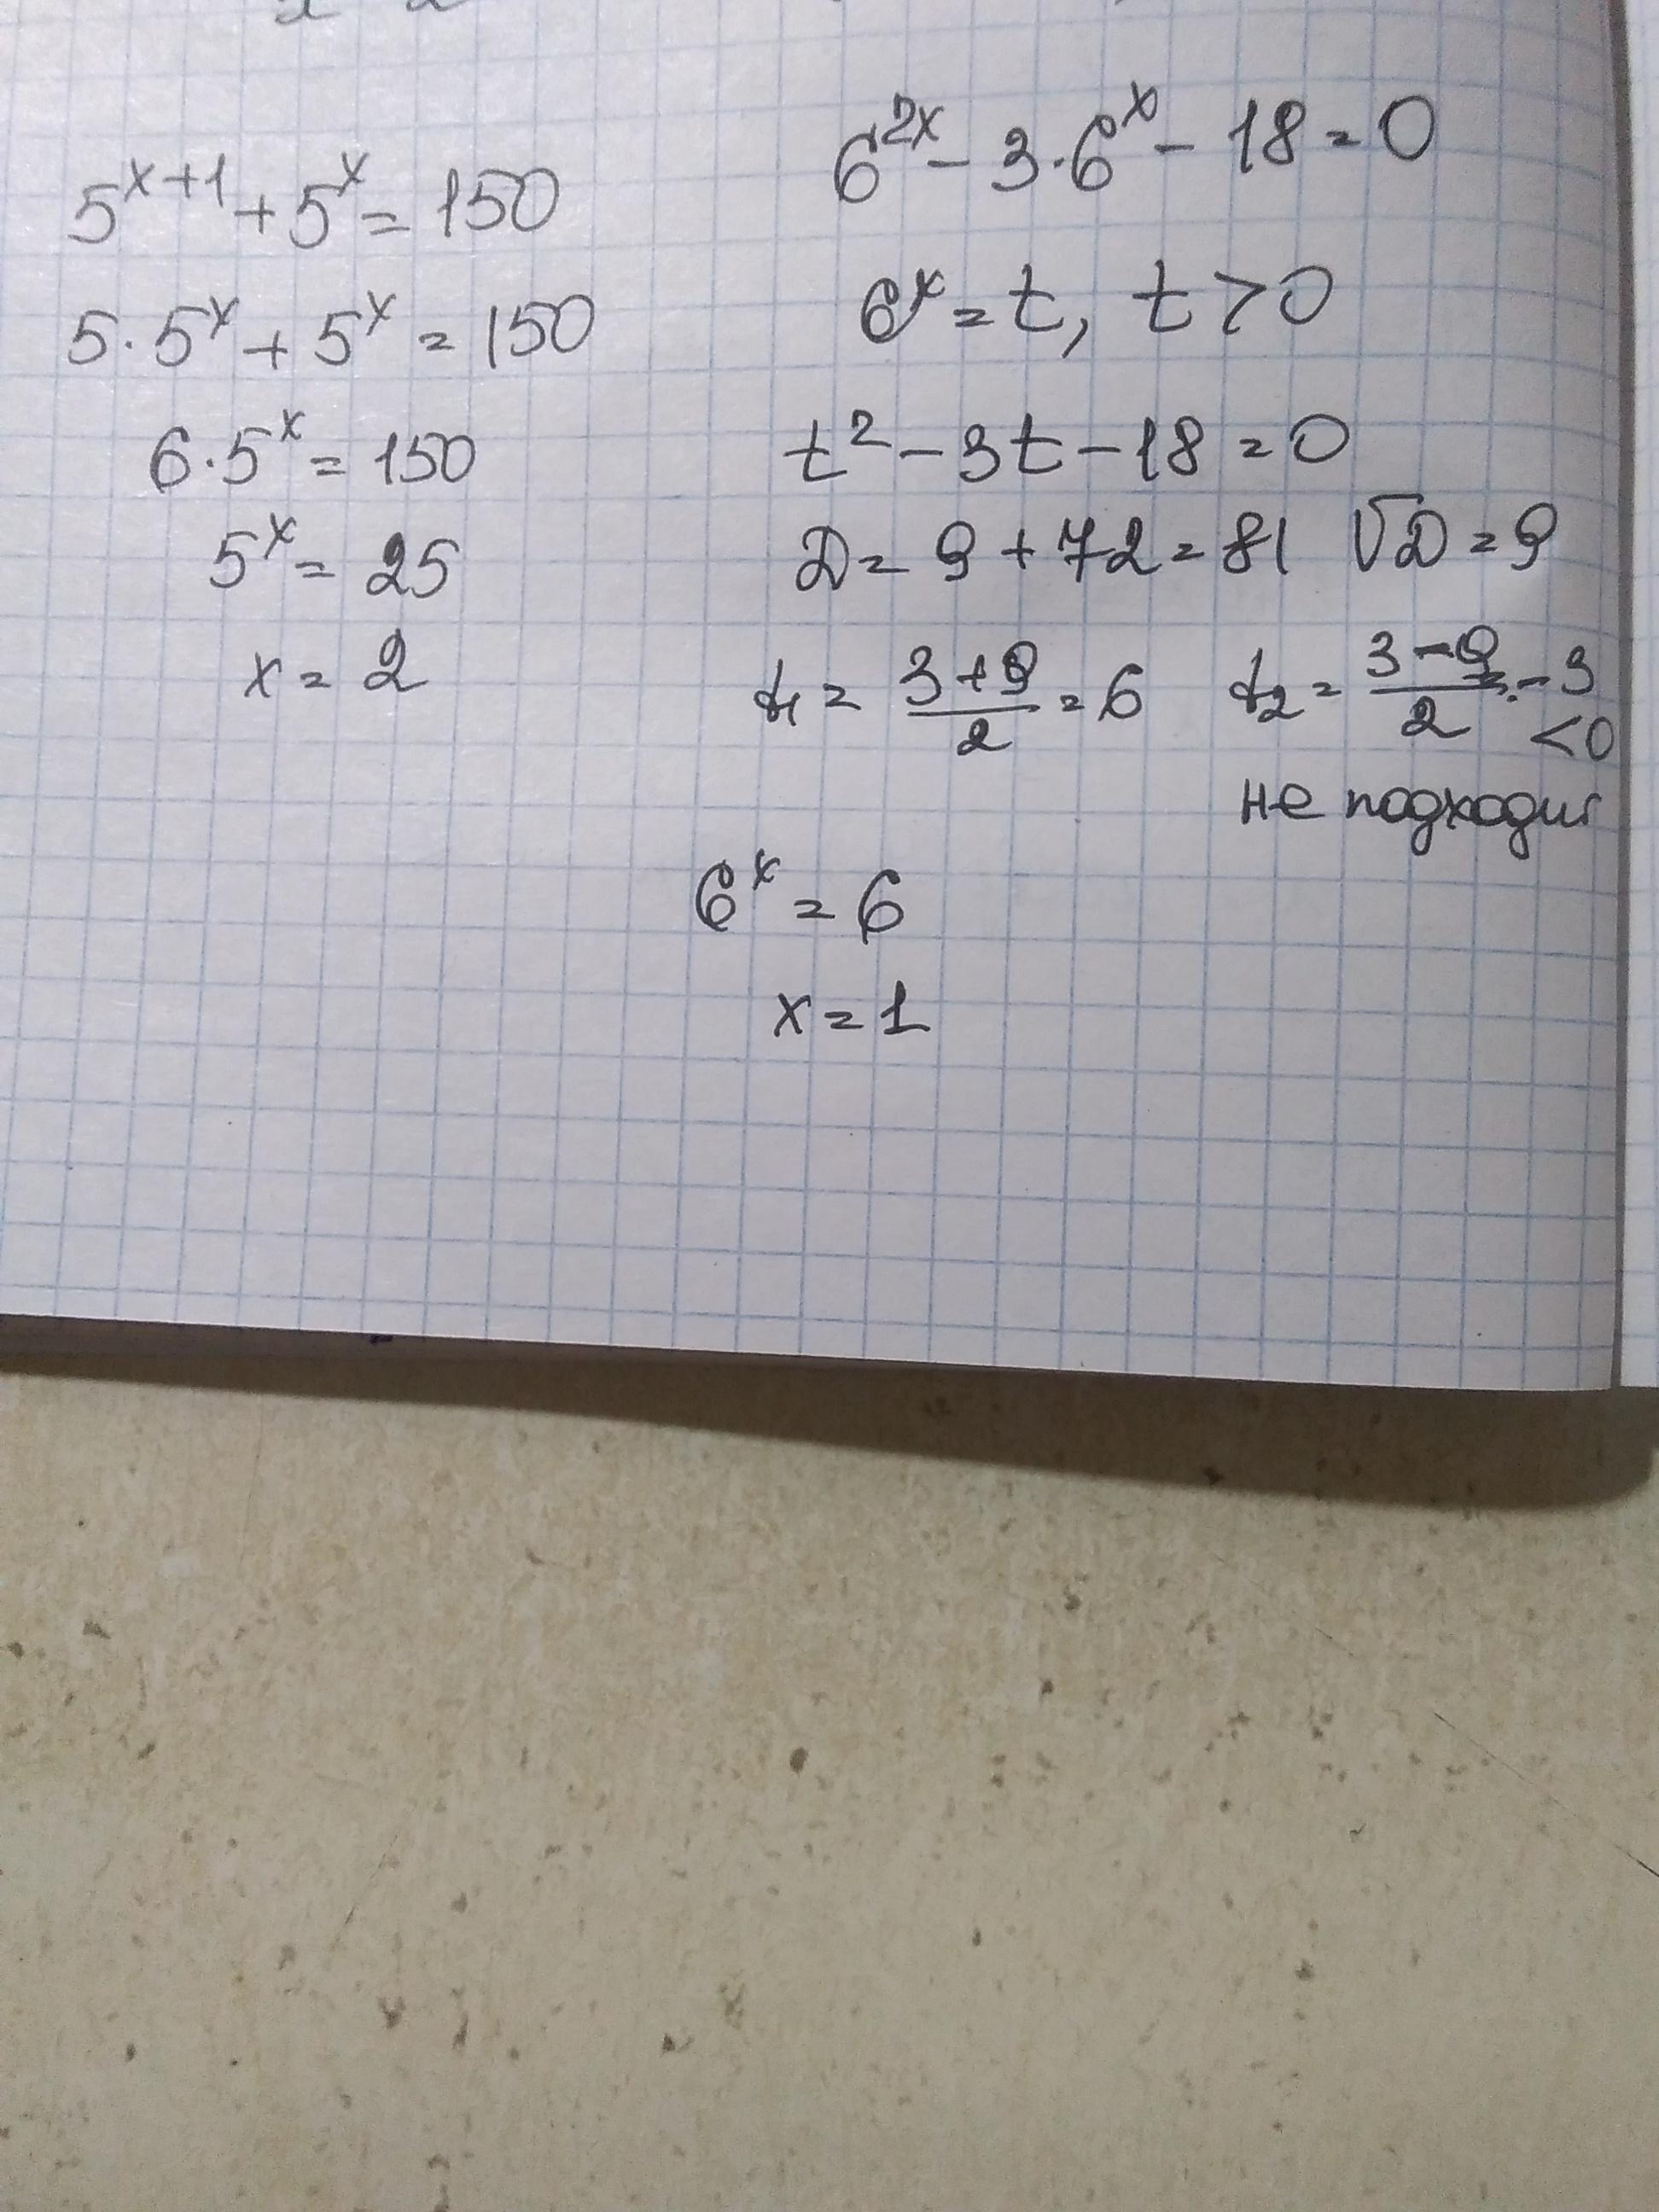 5^{x+1} + 5^x = 150
5 · 5^x + 5^x = 150
6 · 5^x = 150
5^x = 25
x = 2
6^{2x} - 3 · 6^x - 18 = 0
6^x = t, t > 0
t² - 3t - 18 = 0
D = 9 + 72 = 81 √D = 9
t₁ = (3+9)/2 = 6 t₂ = (3-9)/2 = -3
< 0
не подходит
6^x = 6
x = 1